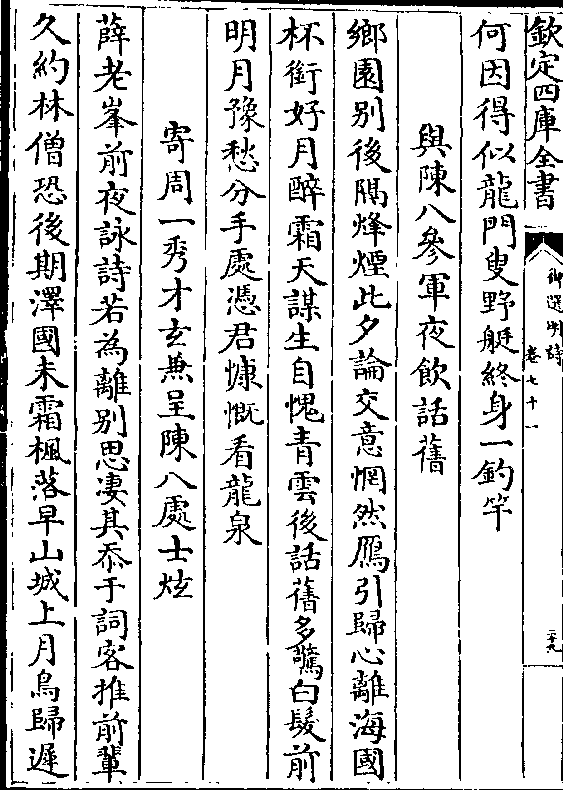 欽定四庫全書
御選明詩
卷七十一
二十九
何因得似龍門叟野艇終身一釣竿
與陳八參軍夜飲話舊
鄉園别後隔烽煙此夕論交意惘然鴈引歸心離海國
杯銜好月醉霜天謀生自愧青雲後話舊多驚白髮前
明月豫愁分手處憑君慷慨看龍泉
寄周一秀才玄兼呈陳八處士炫
薛老峯前夜詠詩若為離别思凄其忝于詞客推前輩
久約林僧恐後期澤國未霜楓落早山城上月鳥歸遲